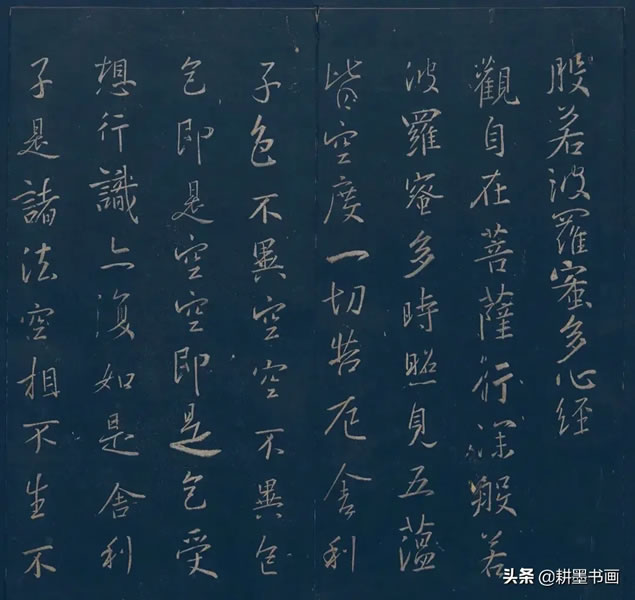 般若波羅蜜多心經
觀自在菩薩行深般若
波羅蜜多時照見五蘊
皆空度一切苦厄舍利
子色不異空空不異色
色即是空空即是色受
想行識亦復如是舍利
子是諸法空相不生不
头条 @耕墨书画